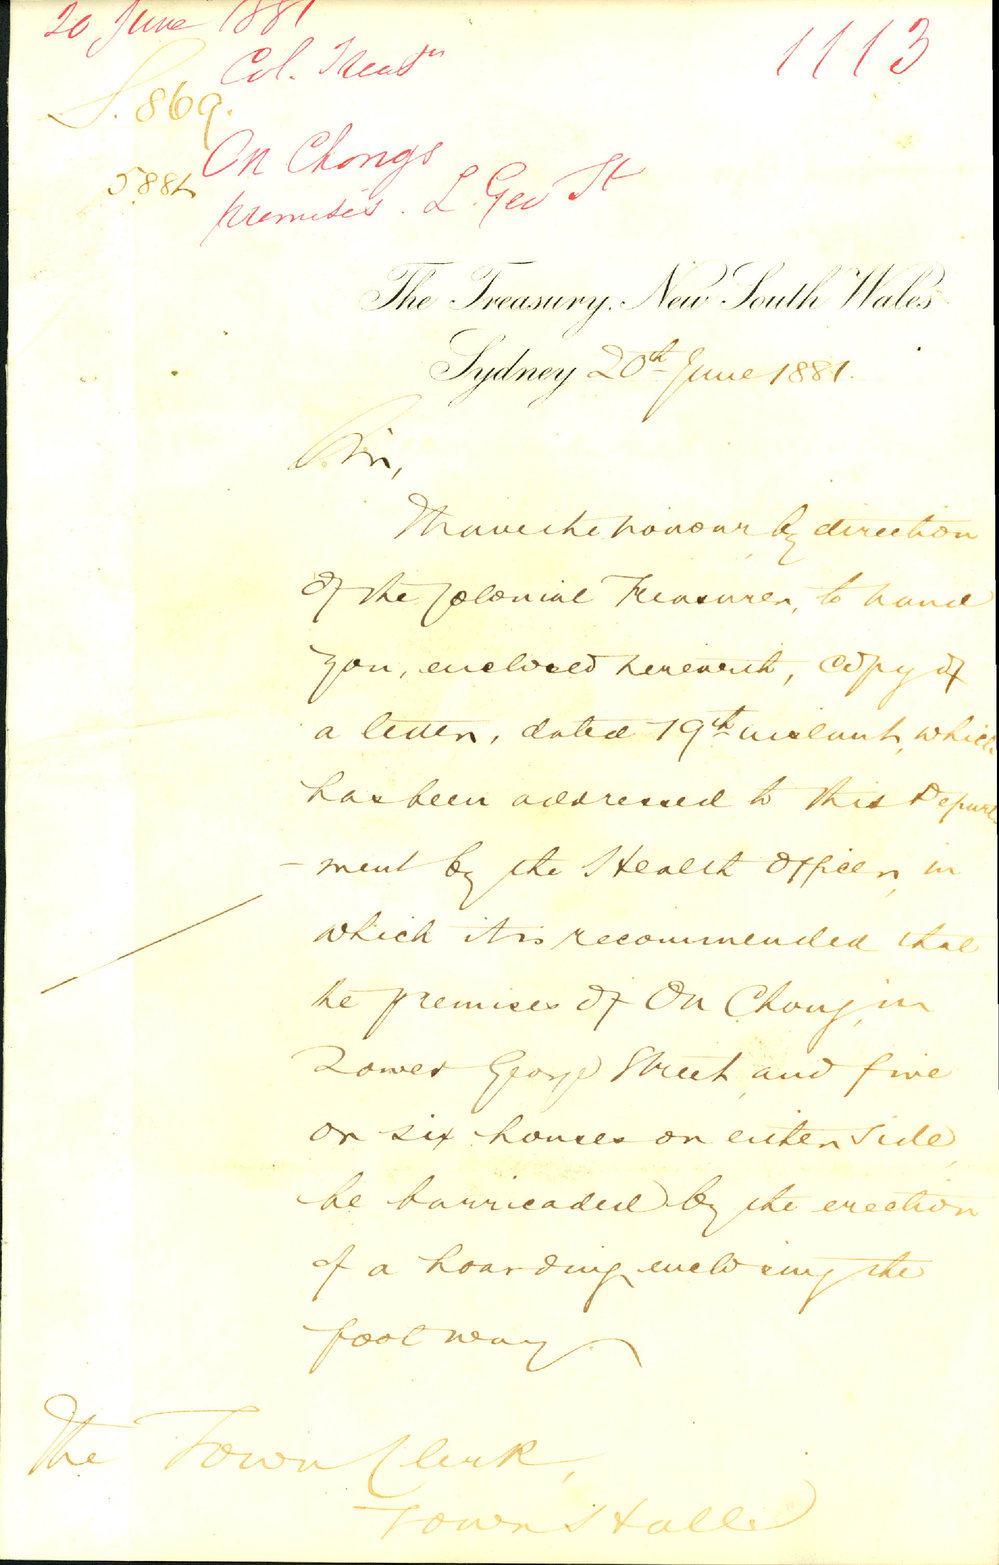 20 June 1881
1113
Col. Treasr
S. 869.
On Chongs
5884
premises. L. Geo St
The Treasury, New South Wales
Sydney 20th June 1881.
Sir,
I have the honour, by direction
of the Colonial Treasurer, to hand
you, enclosed herewith, copy of
a letter, dated 19th instant, which
has been addressed to this Depart
-ment by the Health Officer, in
which it is recommended that
he premises of On Chong, in
Lower George Street, and five
or six houses on either side,
be barricaded by the erection
of a hoarding enclosing the
footway.
The Town Clerk,
Town Hall